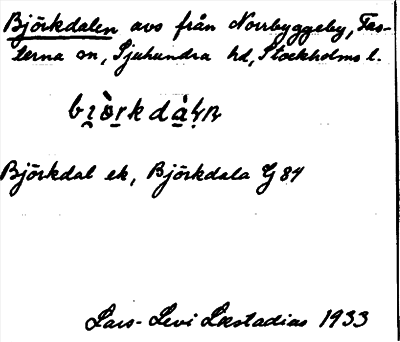 Björkdalen avs från Norrbyggeby, Fas-
terna sn, Sjuhundra hd, Stockholms l.
Björkdal ek, Björkdala G 84
Lars-Levi Læstadius 1933